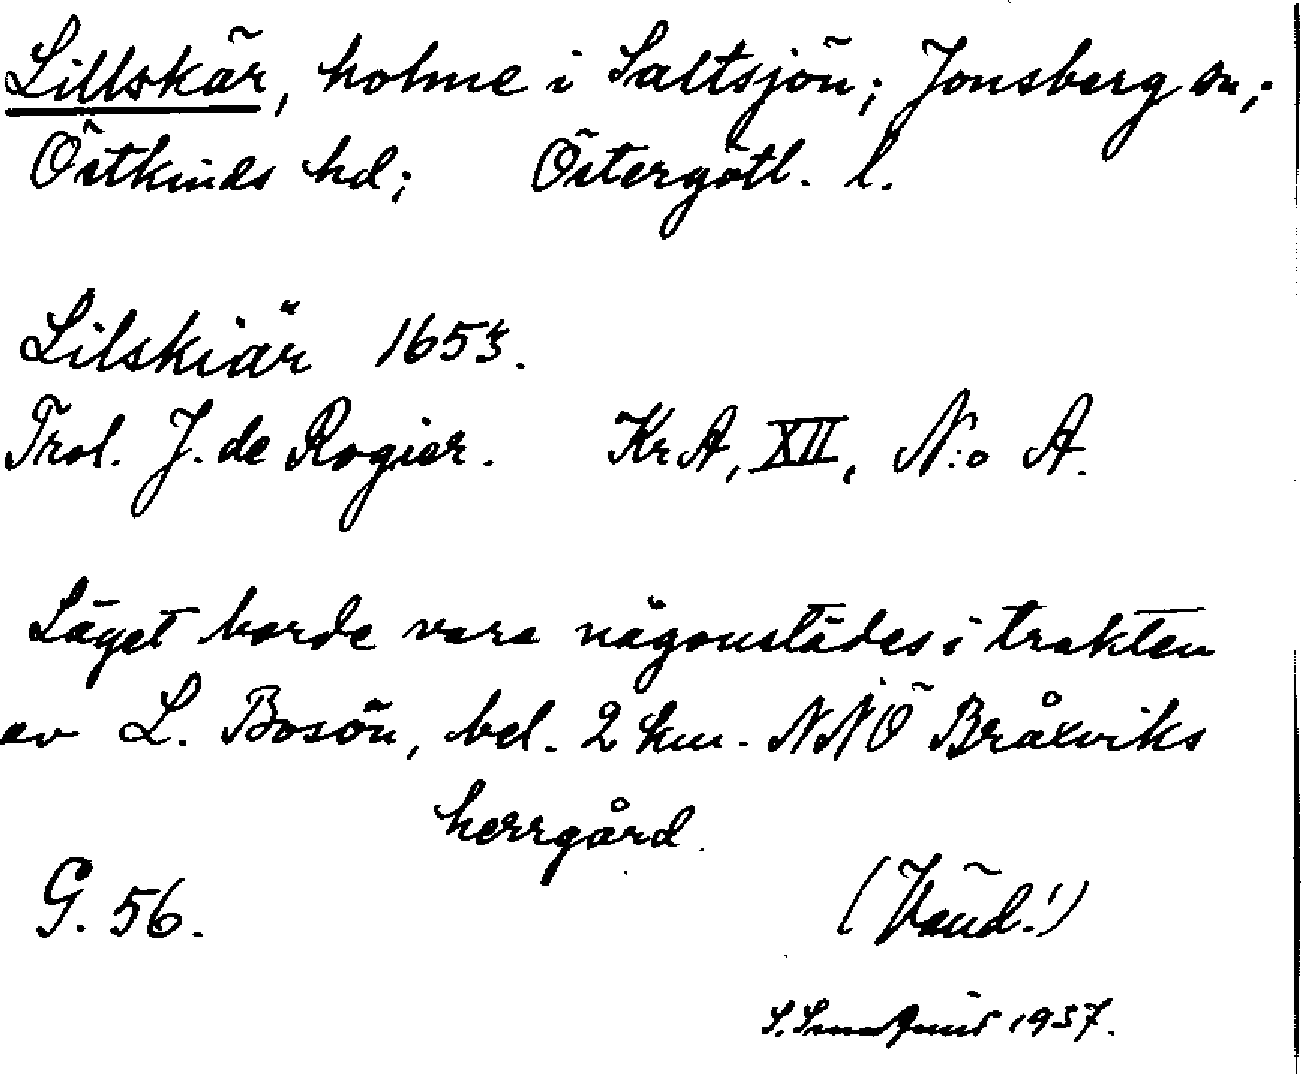 Lillskär, holme i Saltsjön; Jonsberg sn;
Östkinds hd; Östergötl. l.
Lilskiär 1653.
Trol. J. de Rogier. KrA, XII, N:o A.
Läget borde vara någonstädes i trakten
av L. Bosön, bel. 2 km. NNÖ Bråxviks
herrgård.
G. 56.
(Vänd!)
1937.